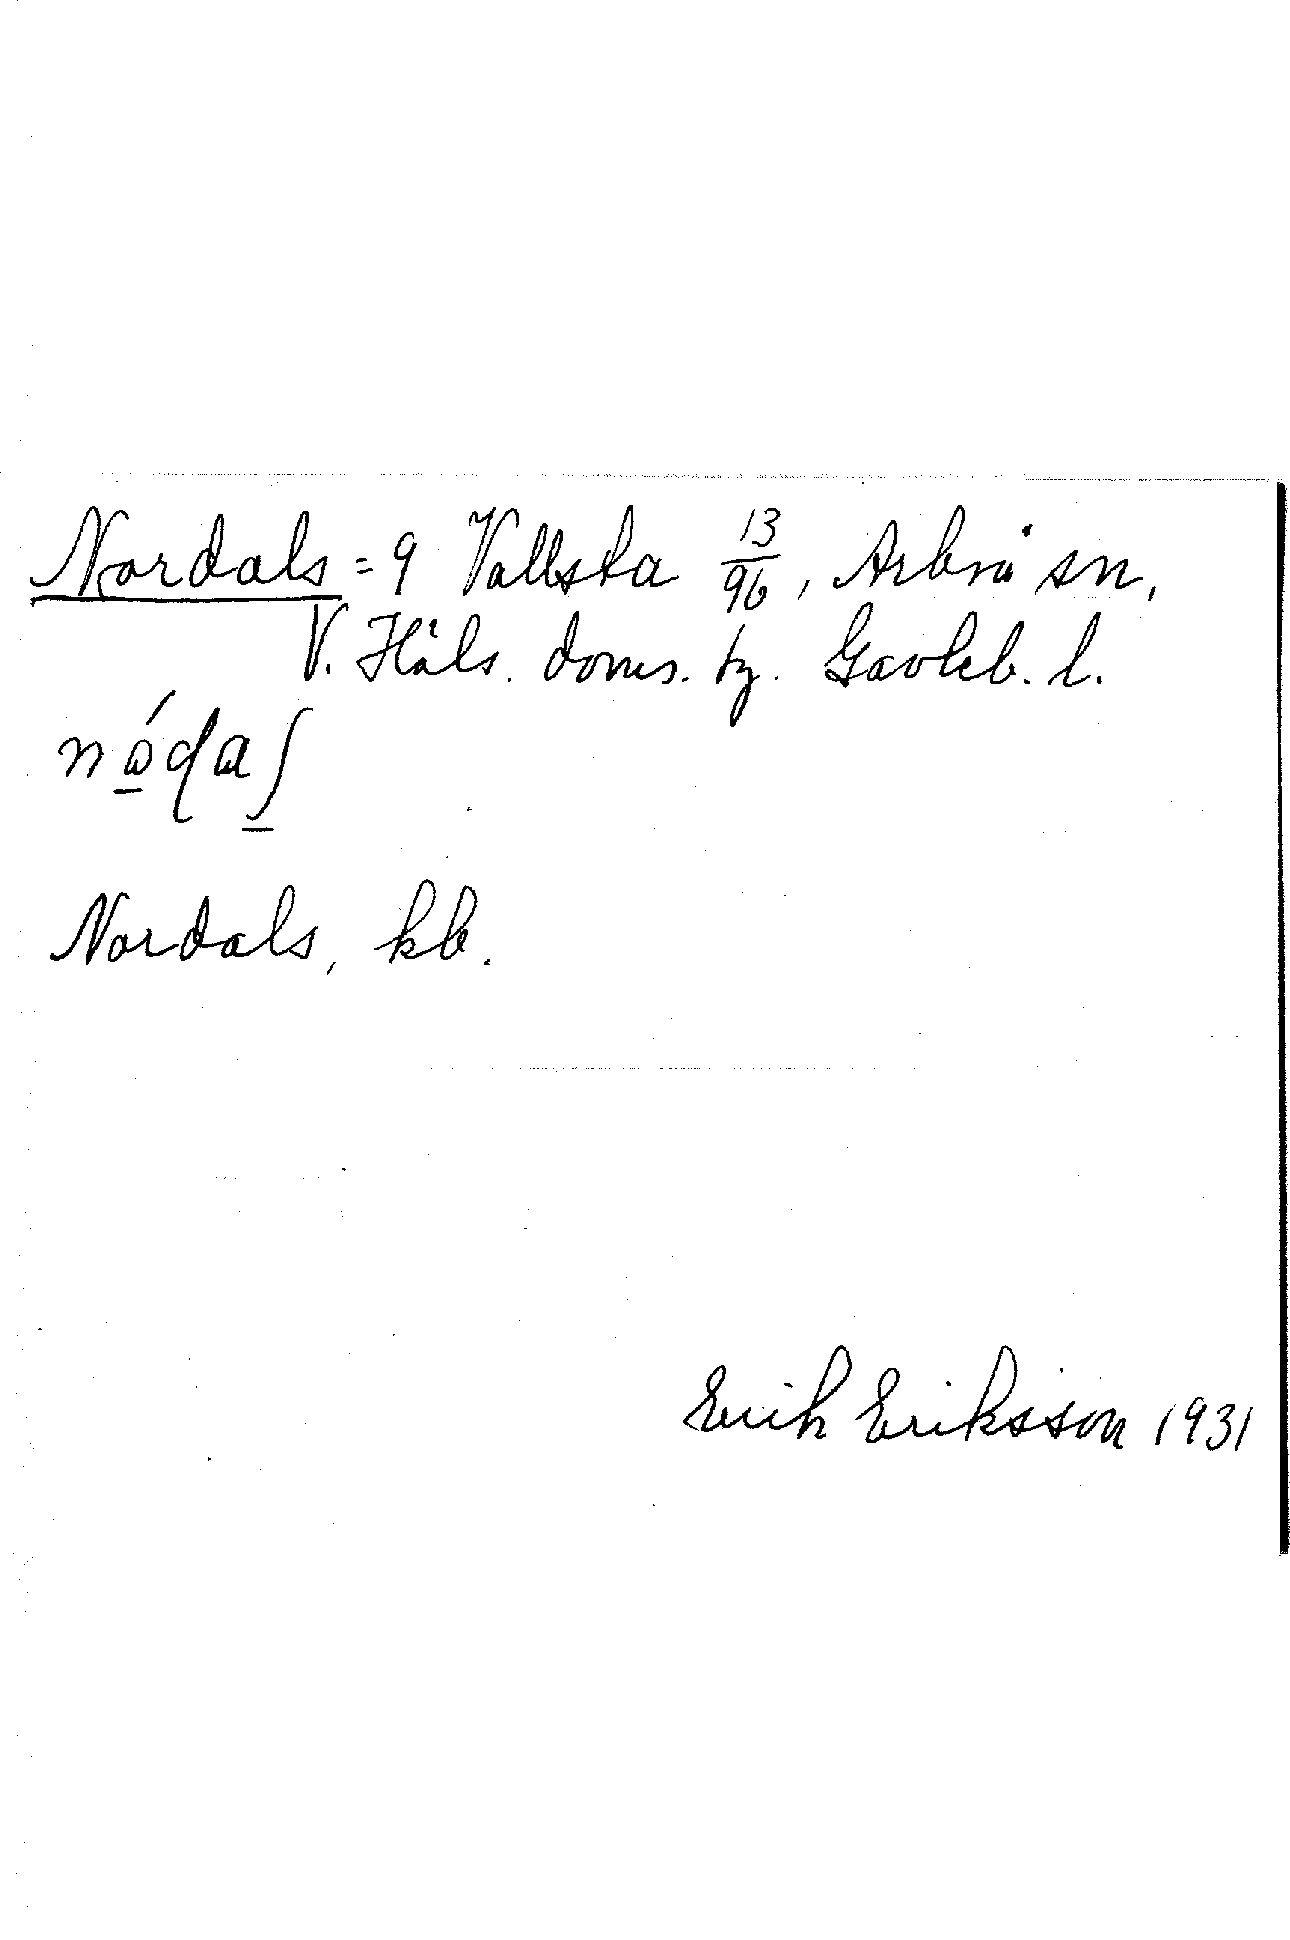 Nordals = 9 Vallsta 13/96, Arbrå sn,
V. Häls. doms. tg. Gävleb. l.
Nordals, kb.
Erik Eriksson 1931